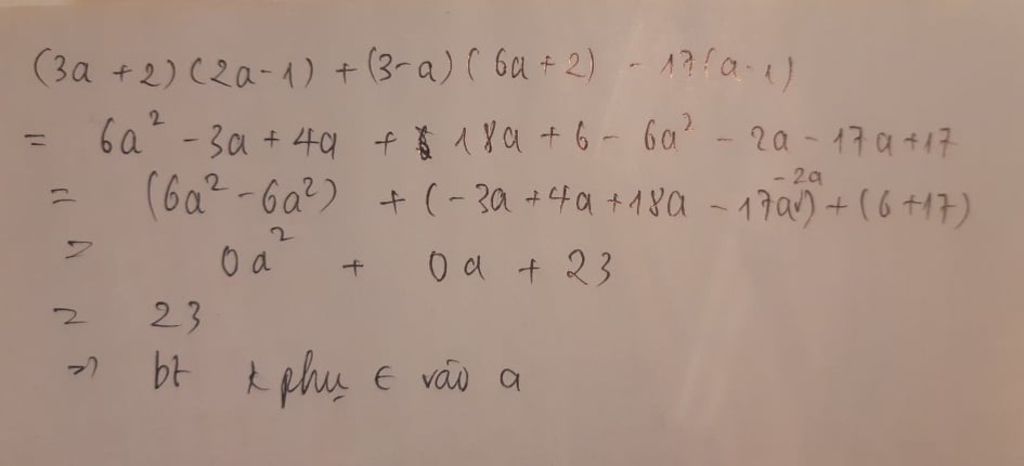 (3a + 2) (2a - 1) + (3 - a) (6a + 2) - 17(a - 1)
= 6a² - 3a + 4a + 18a + 6 - 6a² - 2a - 17a + 17
= (6a² - 6a²) + (-3a + 4a + 18a - 17a - 2a) + (6 + 17)
= 0a² + 0a + 23
= 23
=> bt k phụ ∈ vào a